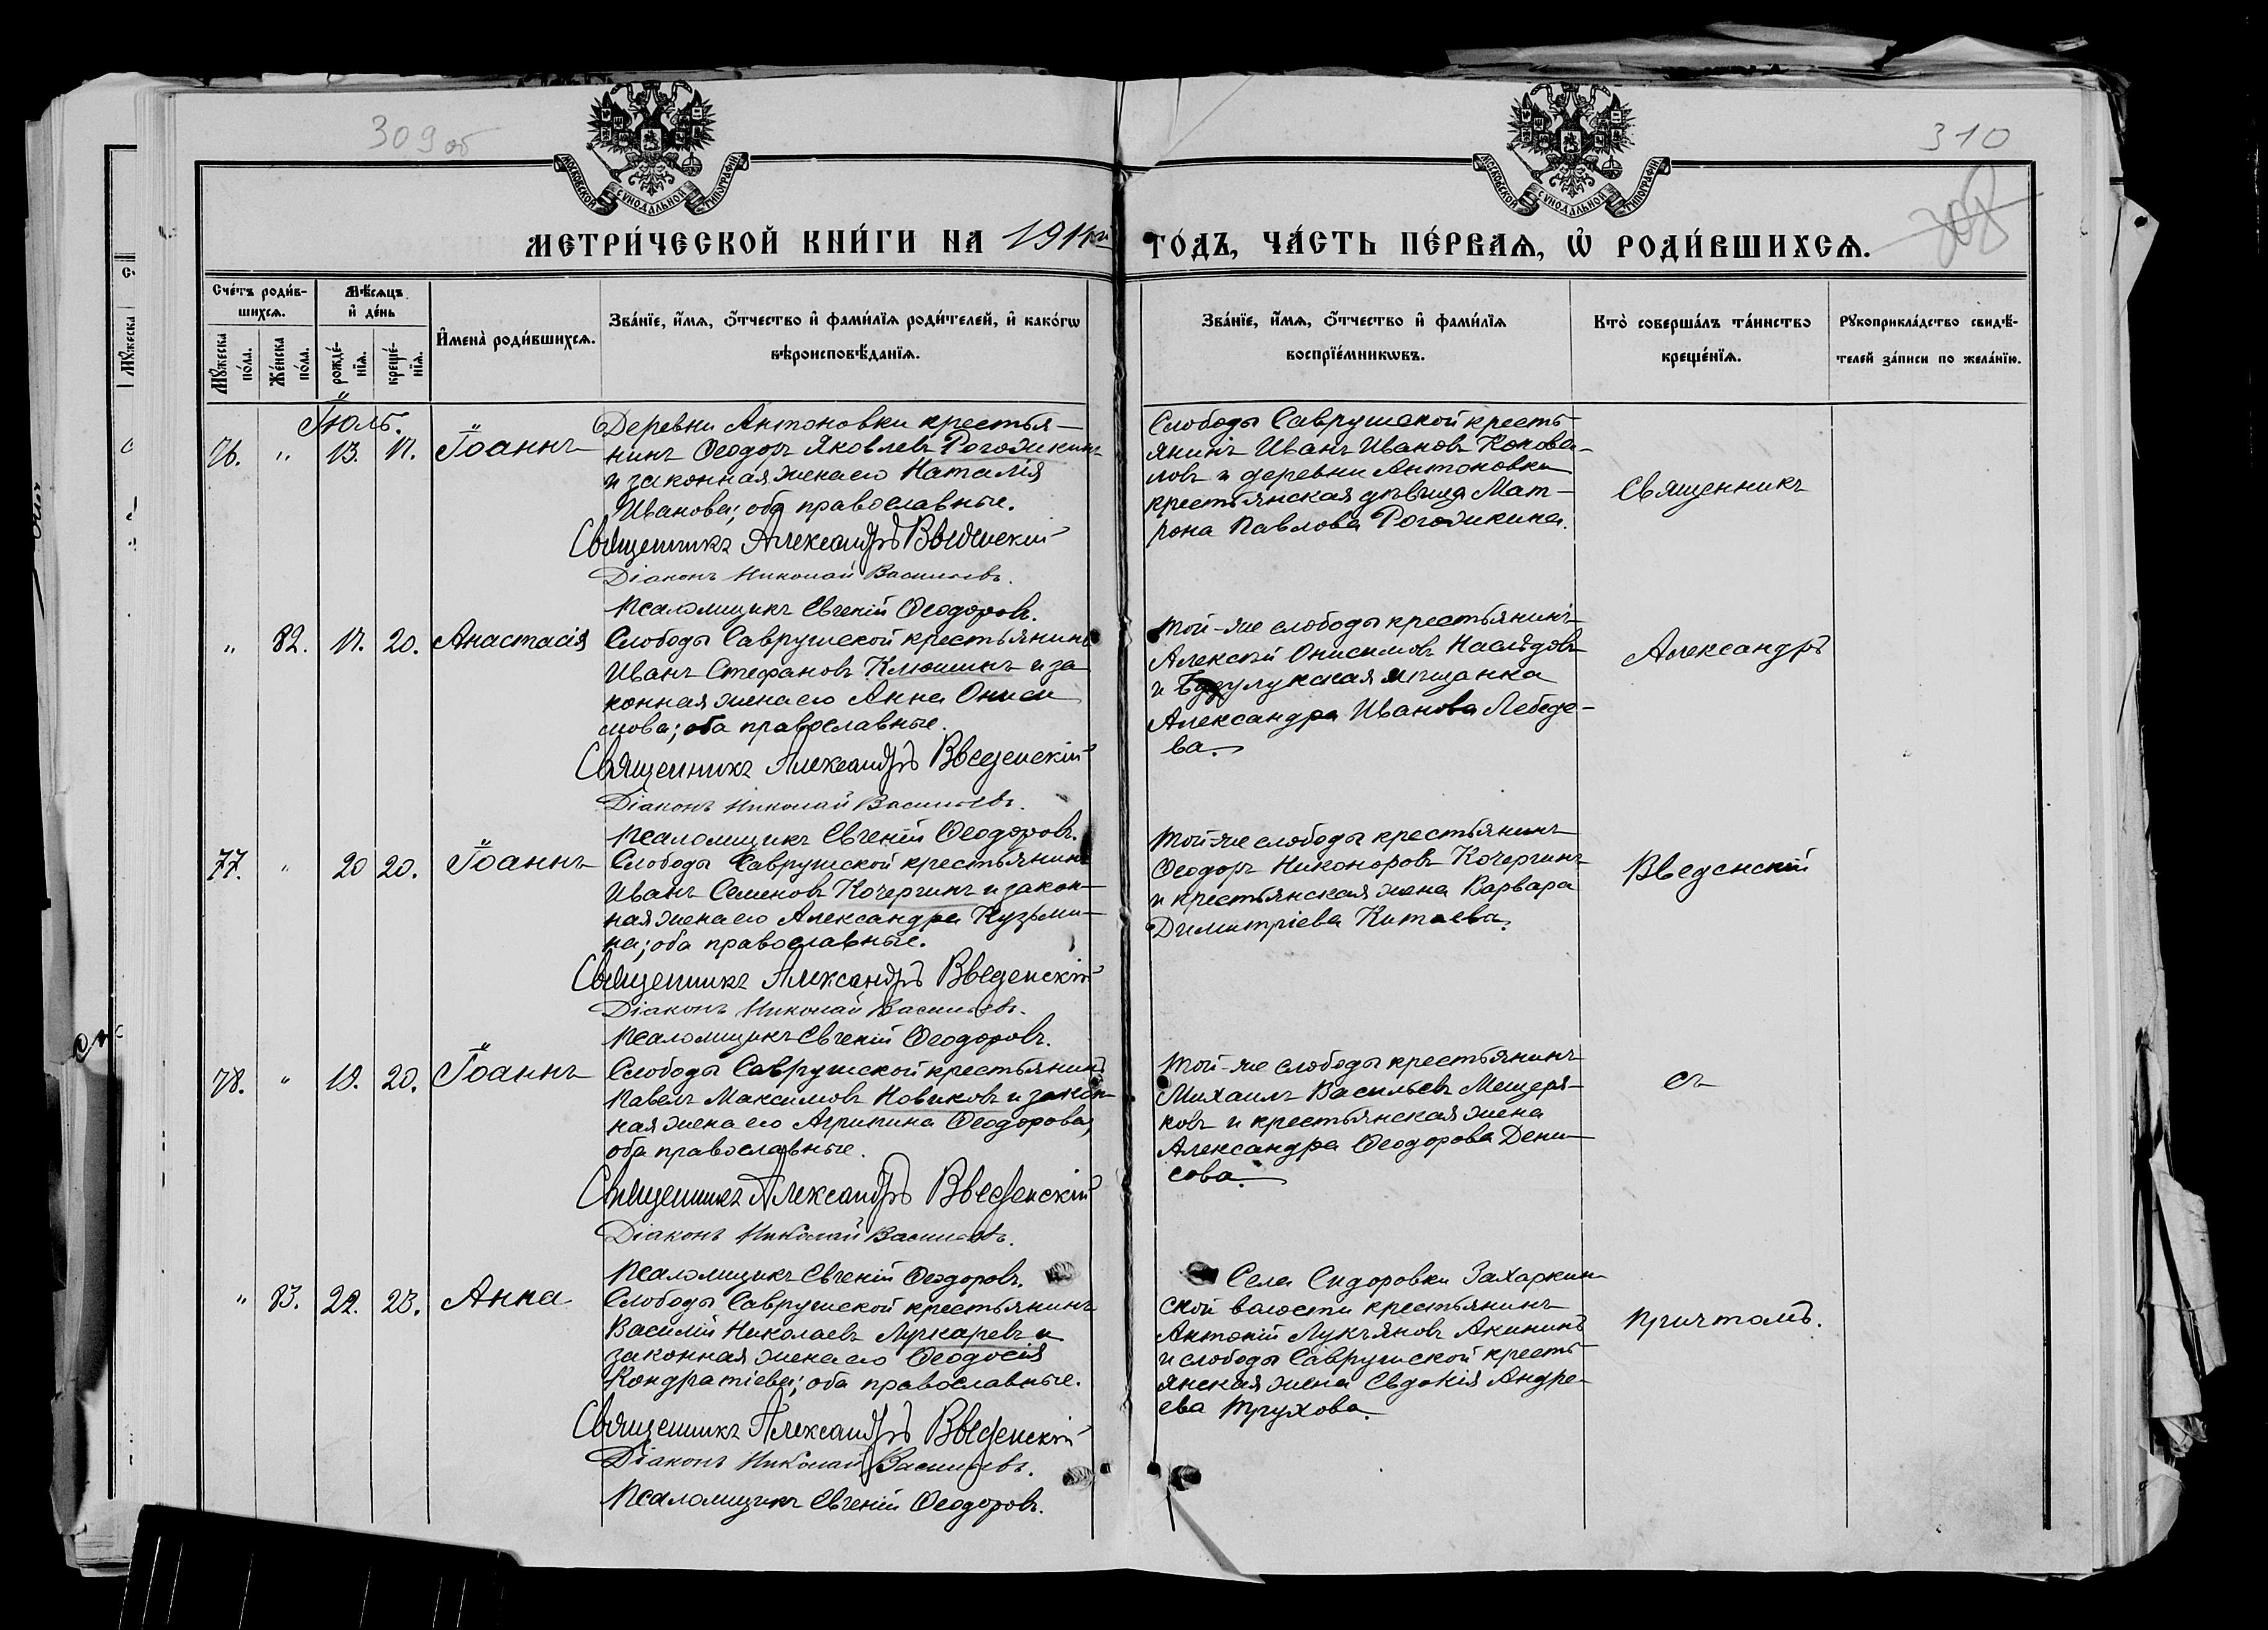 309 об
310
308
МОСКОВСКОЙ СѴНОДАЛЬНОЙ ТИПОГРАФІИ
МОСКОВСКОЙ СѴНОДАЛЬНОЙ ТИПОГРАФІИ
МЕТРИ́ЧЕСКОЙ КНИ́ГИ НА 1911й ГО́ДЪ, ЧА́СТЬ ПЕ́РВАѦ, Ѡ҆ РОДИ́ВШИХСѦ.
Сче́тъ роди́в-
шихсѧ.
Мѣ́сѧцъ
и҆ де́нь
Мꙋ́жеска по́ла.
Же́нска по́ла.
рожде́-
нїѧ.
креще́-
нїѧ.
И҆мена̀ роди́вшихсѧ.
Зва́нїе, и҆́мѧ, ѻ҆́тчество и҆ фами́лїѧ роди́телей, и҆ како́гѡ
вѣроисповѣ́данїѧ.
Зва́нїе, и҆́мѧ, ѻ҆́тчество и҆ фами́лїѧ
воспрїе́мникѡвъ.
Кто̀ соверша́лъ та́инство
креще́нїѧ.
Рꙋкоприкла́дство свидѣ́-
телей за́писи по жела́нїю.
Іюль.
76. " 13. 17. Іоаннъ
Деревни Антоновки крестья-
нинъ Ѳеодоръ Яковлевъ Рогожкинъ
и законная жена его Наталія
Иванова; оба православные.
Священникъ Александръ Введенскій
Діаконъ Николай Васильевъ.
Псаломщикъ Евгеній Ѳеодоровъ.
Слободы Саврушской кресть-
янинъ Иванъ Ивановъ Конова-
ловъ и деревни Антоновки
крестьянская дѣвица Мат-
рона Павлова Рогожкина.
Священникъ
" 82. 17. 20. Анастасія
Слободы Саврушской крестьянинъ
Иванъ Стефановъ Клюшинъ и за-
конная жена его Анна Ониси-
мова; оба православные.
Священникъ Александръ Введенскій
Діаконъ Николай Васильевъ.
Псаломщикъ Евгеній Ѳеодоровъ.
Той-же слободы крестьянинъ
Алексѣй Онисимовъ Наслѣдовъ
и Бузулукская мѣщанка
Александра Иванова Лебеде-
ва.
Александръ
77. " 20 20. Іоаннъ
Слободы Саврушской крестьянинъ
Иванъ Семеновъ Кочергинъ и закон-
ная жена его Александра Кузьми-
на; оба православные.
Священникъ Александръ Введенскій
Діаконъ Николай Васильевъ.
Псаломщикъ Евгеній Ѳеодоровъ.
Той-же слободы крестьянинъ
Ѳеодоръ Никоноровъ Кочергинъ
и крестьянская жена Варвара
Димитріева Китаева.
Введенскій
78. " 19. 20. Іоаннъ
Слободы Саврушской крестьянинъ
Павелъ Максимовъ Новиковъ и закон-
ная жена его Агрипина Ѳеодорова;
оба православные.
Священникъ Александръ Введенскій
Діаконъ Николай Васильевъ.
Псаломщикъ Евгеній Ѳеодоровъ.
Той-же слободы крестьянинъ
Михаилъ Васильевъ Мещеря-
ковъ и крестьянская жена
Александра Ѳеодорова Дени-
сова.
съ
" 83. 22. 23. Анна
Слободы Саврушской крестьянинъ
Василій Николаевъ Лункаревъ и
законная жена его Ѳеодосія
Кондратіева; оба православные.
Священникъ Александръ Введенскій
Діаконъ Николай Васильевъ.
Псаломщикъ Евгеній Ѳеодоровъ.
Села Сидоровки Захаркин-
ской волости крестьянинъ
Антоній Лукьяновъ Акининъ
и слободы Саврушской кресть-
янская жена Евдокія Андре-
ева Трухова.
причтомъ.